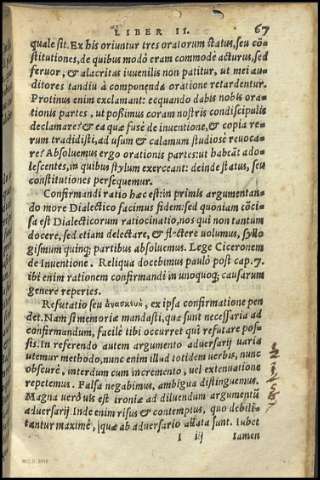 LIBER II. 67
quale sit. Ex his oriuntur tres oratorum status, seu cõ
stitutiones, de quibus modò eram commodè acturus, sed
feruor, & alacritas iuuenilis non patitur, ut mei au-
ditores tandiu à componẽda oratione retardentur.
Protinus enim exclamant: ecquando dabis nobis ora-
tionis partes, ut possimus coram nostris condiscipulis
declamare? & ea quæ fusè de inuentione, & copia re
rum tradidisti, ad usum & calamum studiosè reuoca-
re? Absoluemus ergo orationis partes: ut habeãt ado-
lescentes, in quibus stylum exerceant: deinde status, seu
constitutiones persequemur.
Confirmandi ratio hæc est: in primis argumentan-
do more Dialectico facimus fidem: sed quoniam cõci-
sa est Dialecticorum ratiocinatio, nos qui non tantum
docere, sed etiam delectare, & flectere uolumus, syllo
gismum quinq; partibus absoluemus. Lege Ciceronem
de Inuentione. Reliqua docebimus paulò post cap. 7.
ibi enim rationem confirmandi in unoquoq; causarum
genere reperies.
Refutatio seu ex ipsa confirmatione pen
det. Nam si memoriæ mandasti, quæ sunt necessaria ad
confirmandum, facilè tibi occurret qui refutare pos-
sis. In referendo autem argumento aduersarij uaria
utemur methodo, nunc enim illud totidem uerbis, nunc
obscurè, interdum cum incremento, uel extenuatione
repetemus. Falsa negabimus, ambigua distinguemus.
Magna uerò uis est ironiæ ad diluendum argumentũ
aduersarij Inde enim risus & contemptus, quo debili-
tantur maximè, quæ ab aduersario allata sunt. Iubet
I iij tamen